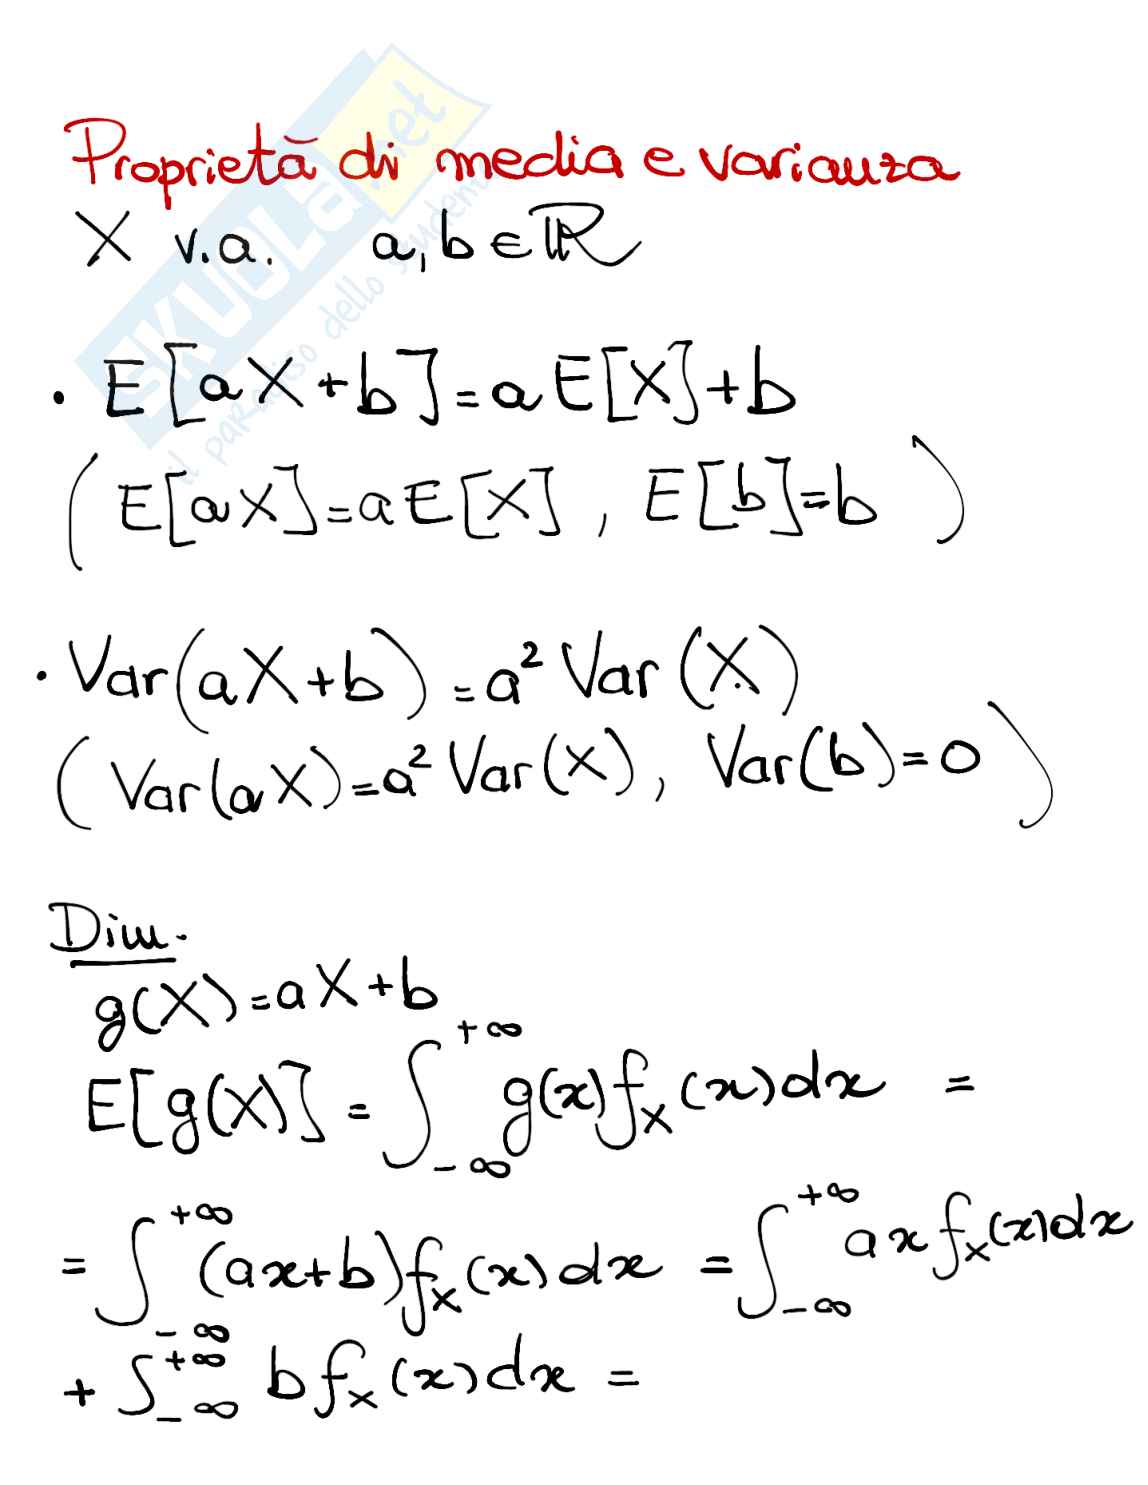 Proprietà di media e varianza
X v.a. a,b ∈ ℝ
• E[aX+b]=aE[X]+b
(E[aX]=aE[X], E[b]=b)
• Var(aX+b)=a² Var(X)
(Var(aX)=a² Var(X), Var(b)=0)
Dim.
g(X)=aX+b
E[g(X)] = ∫_{-∞}^{+∞} g(x)f_X(x)dx =
= ∫_{-∞}^{+∞} (ax+b)f_X(x)dx = ∫_{-∞}^{+∞} ax f_X(x)dx
+ ∫_{-∞}^{+∞} b f_X(x)dx =
SKUOLA.net
il paradiso dello studente